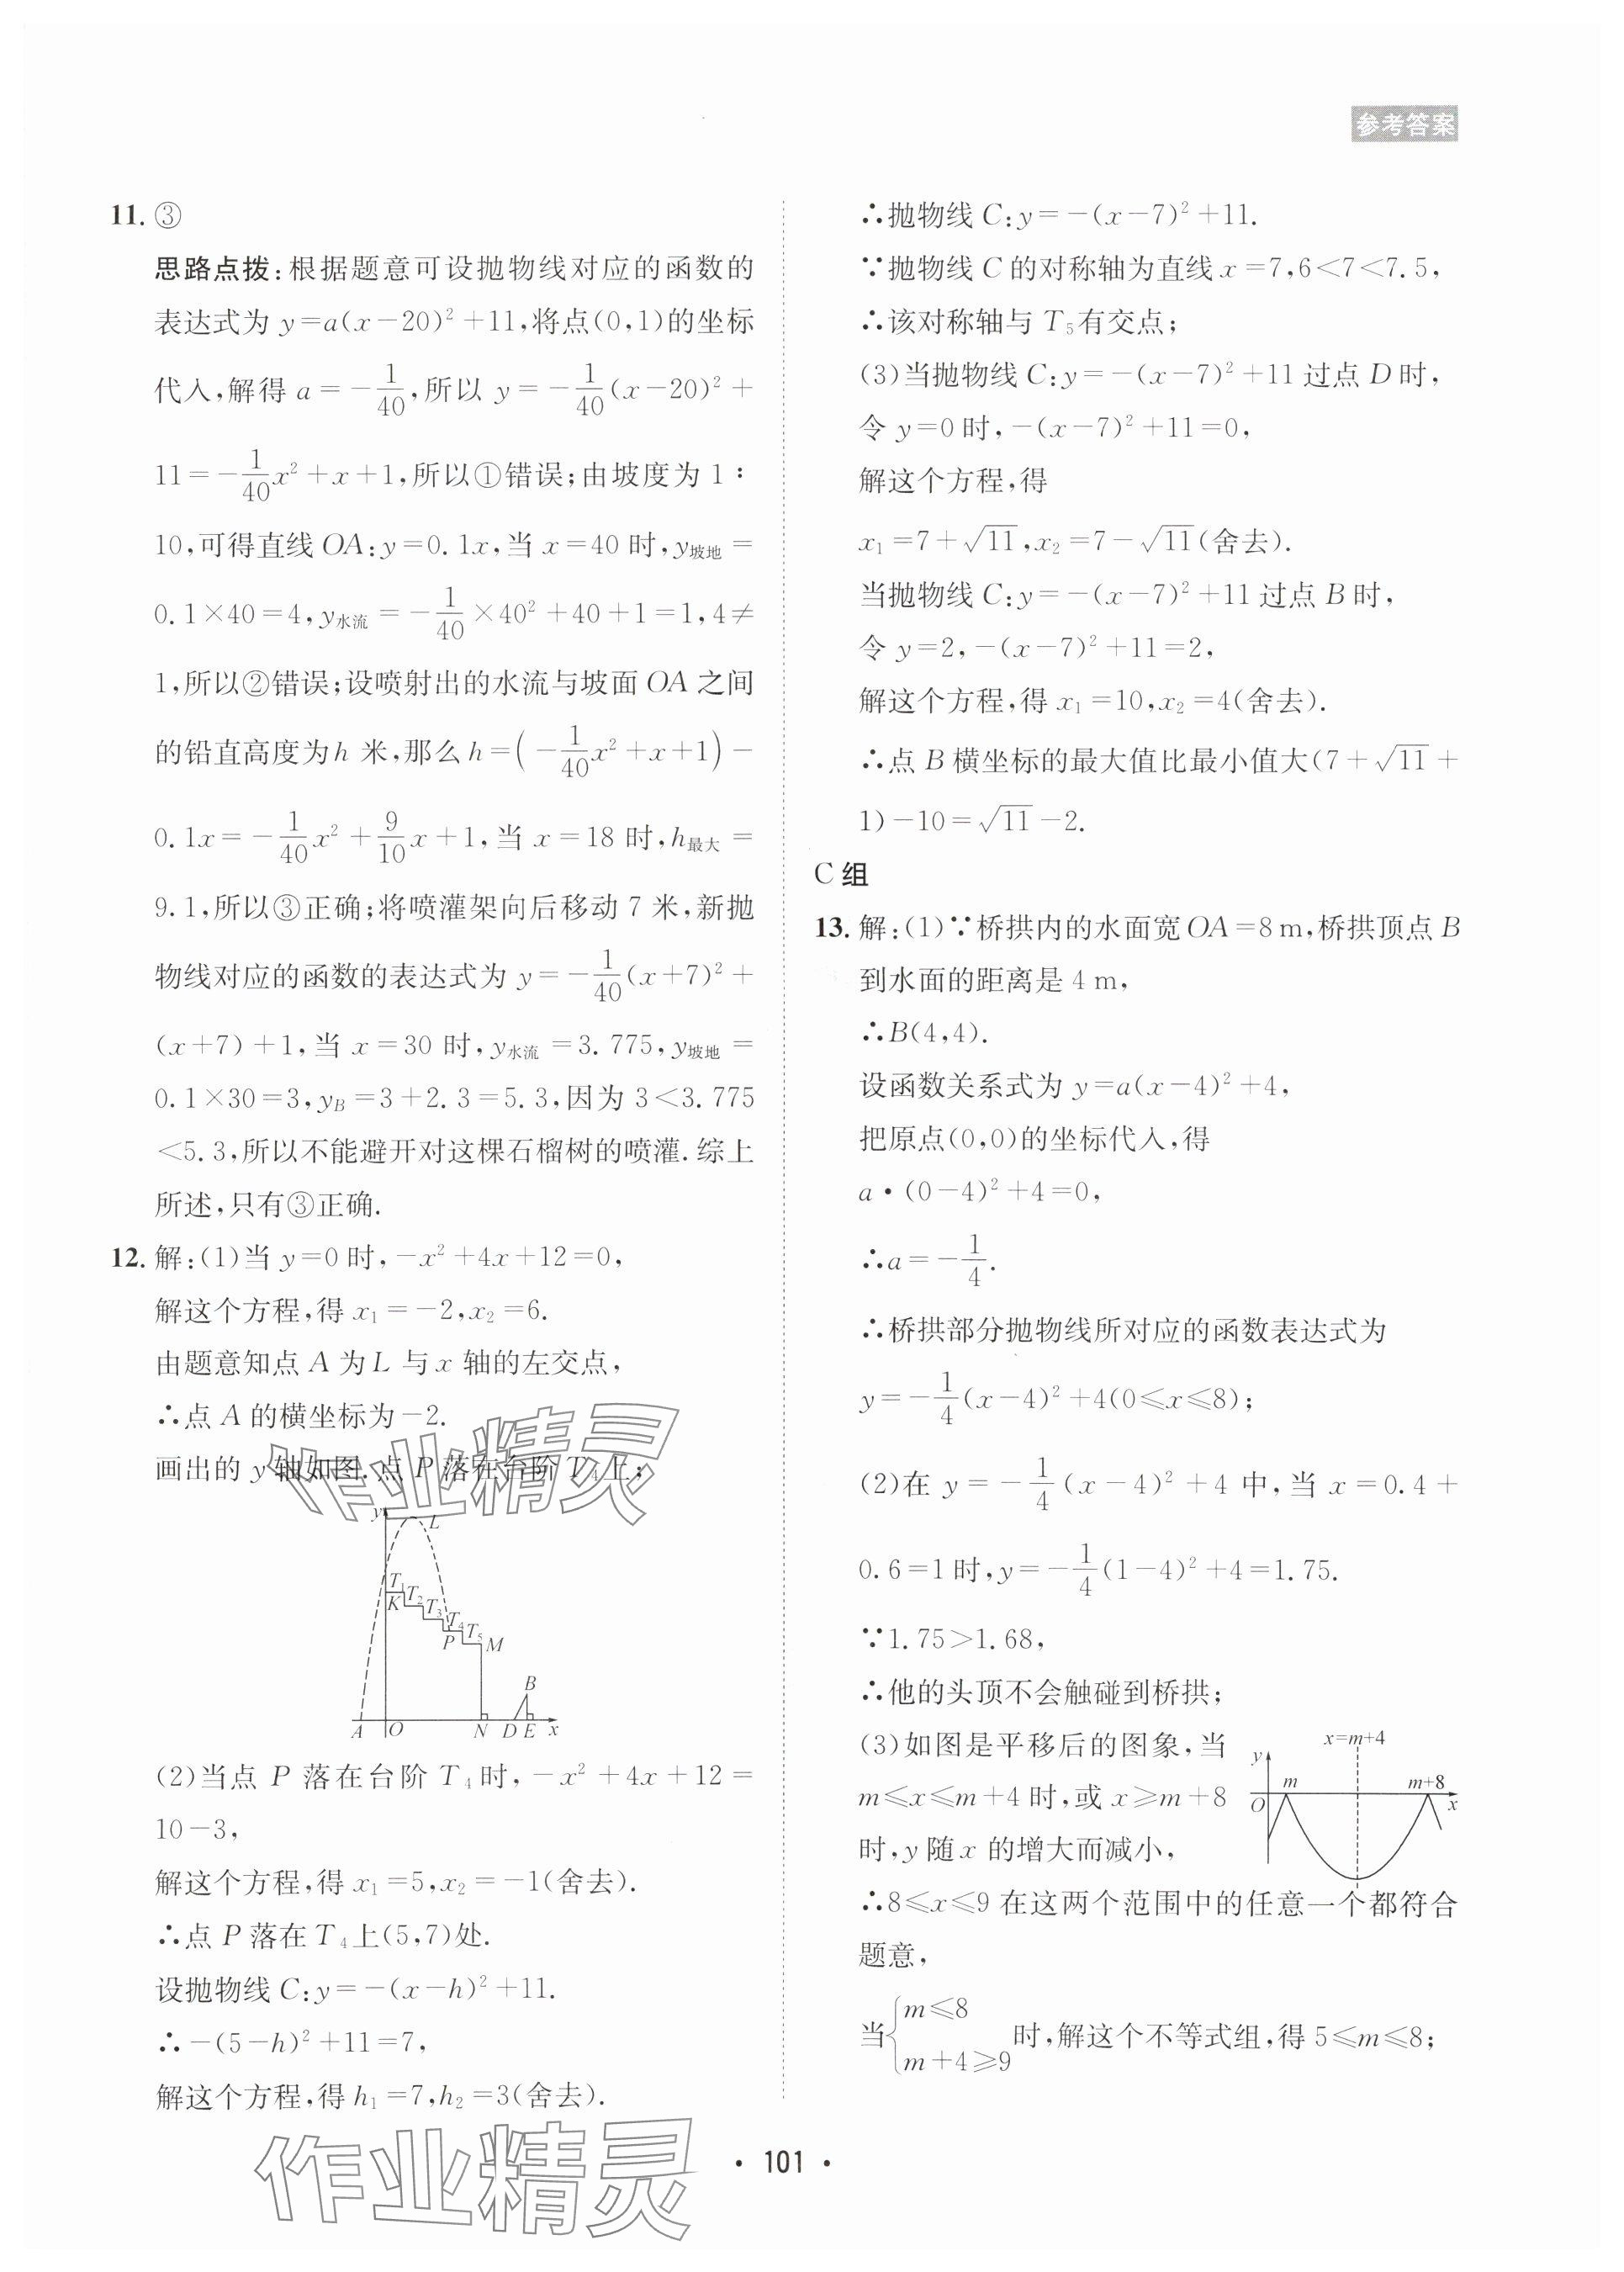 参考答案
11. ③
思路点拨:根据题意可设抛物线对应的函数的
表达式为 y=a(x-20)²+11,将点(0,1)的坐标
代入,解得 a=-1/40,所以 y=-1/40(x-20)²+
11=-1/40x²+x+1,所以①错误;由坡度为 1∶
10,可得直线 OA:y=0.1x,当 x=40 时,y坡地=
0.1×40=4,y水流=-1/40×40²+40+1=1,4≠
1,所以②错误;设喷射出的水流与坡面 OA 之间
的铅直高度为h 米,那么h=(-1/40x²+x+1)-
0.1x=-1/40x²+9/10x+1,当 x=18 时,h最大=
9.1,所以③正确;将喷灌架向后移动 7 米,新抛
物线对应的函数的表达式为 y=-1/40(x+7)²+
(x+7)+1,当 x=30 时,y水流=3.775,y坡地=
0.1×30=3,yB=3+2.3=5.3,因为 3<3.775
<5.3,所以不能避开对这棵石榴树的喷灌.综上
所述,只有③正确.
12. 解:(1)当 y=0 时,-x²+4x+12=0,
解这个方程,得 x₁=-2,x₂=6.
由题意知点 A 为L 与x 轴的左交点,
∴点 A 的横坐标为-2.
画出的 y 轴如图.点 P 落在台阶 T₄上;
y L
T₁
K T₂
T₃
T₄
P T₅ M
B
A O N D E x
(2)当点 P 落在台阶 T₄时,-x²+4x+12=
10-3,
解这个方程,得 x₁=5,x₂=-1(舍去).
∴点 P 落在 T₄上(5,7)处.
设抛物线 C:y=-(x-h)²+11.
∴-(5-h)²+11=7,
解这个方程,得 h₁=7,h₂=3(舍去).
∴抛物线 C:y=-(x-7)²+11.
∵抛物线 C 的对称轴为直线 x=7,6<7<7.5,
∴该对称轴与 T₅有交点;
(3)当抛物线 C:y=-(x-7)²+11 过点 D 时,
令 y=0时,-(x-7)²+11=0,
解这个方程,得
x₁=7+√11,x₂=7-√11(舍去).
当抛物线 C:y=-(x-7)²+11 过点 B 时,
令 y=2,-(x-7)²+11=2,
解这个方程,得 x₁=10,x₂=4(舍去).
∴点 B 横坐标的最大值比最小值大(7+√11+
1)-10=√11-2.
C 组
13. 解:(1)∵桥拱内的水面宽 OA=8 m,桥拱顶点 B
到水面的距离是 4 m,
∴B(4,4).
设函数关系式为 y=a(x-4)²+4,
把原点(0,0)的坐标代入,得
a·(0-4)²+4=0,
∴a=-1/4.
∴桥拱部分抛物线所对应的函数表达式为
y=-1/4(x-4)²+4(0≤x≤8);
(2)在 y=-1/4(x-4)²+4 中,当 x=0.4+
0.6=1 时,y=-1/4(1-4)²+4=1.75.
∵1.75>1.68,
∴他的头顶不会触碰到桥拱;
(3)如图是平移后的图象,当
m≤x≤m+4 时,或 x≥m+8
时,y 随 x 的增大而减小,
x=m+4
y m m+8
O x
∴8≤x≤9 在这两个范围中的任意一个都符合
题意,
当{m≤8 m+4≥9 时,解这个不等式组,得 5≤m≤8;
作业精灵
作业精灵
• 101 •